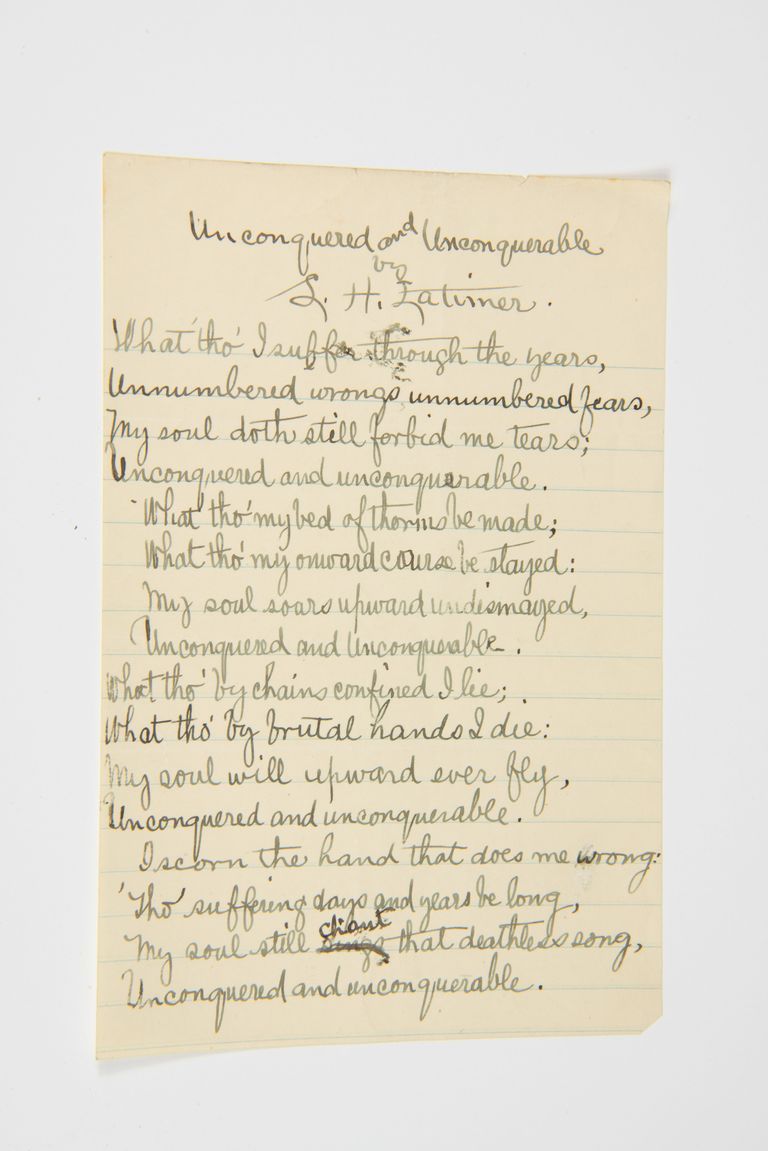 Unconquered and Unconquerable
by
L. H. Latimer.
What tho' I suffer through the years,
Unnumbered wrongs unnumbered fears,
My soul doth still forbid me tears;
Unconquered and unconquerable.
What tho' my bed of thorns be made;
What tho' my onward course be stayed:
My soul soars upward undismayed,
Unconquered and Unconquerable.
What tho' by chains confined I lie;
What tho' by brutal hands I die:
My soul will upward ever fly,
Unconquered and unconquerable.
I scorn the hand that does me wrong:
'Tho' suffering days and years be long,
My soul still chant that deathless song,
Unconquered and unconquerable.